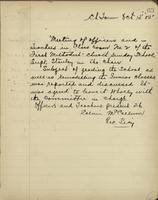 Ch Town Oct 15th 05
Meeting of officers and
Teachers in Class room No 2 of the
First Methodist Church Sunday School
Supt Stanley in the chair
Subject of grading the School as
well as remodeling the Junior classes
was reported and discussed It was
agreed to leave it wholly with
the Committee in charge
Officers and Teachers present 26
Rec Secy